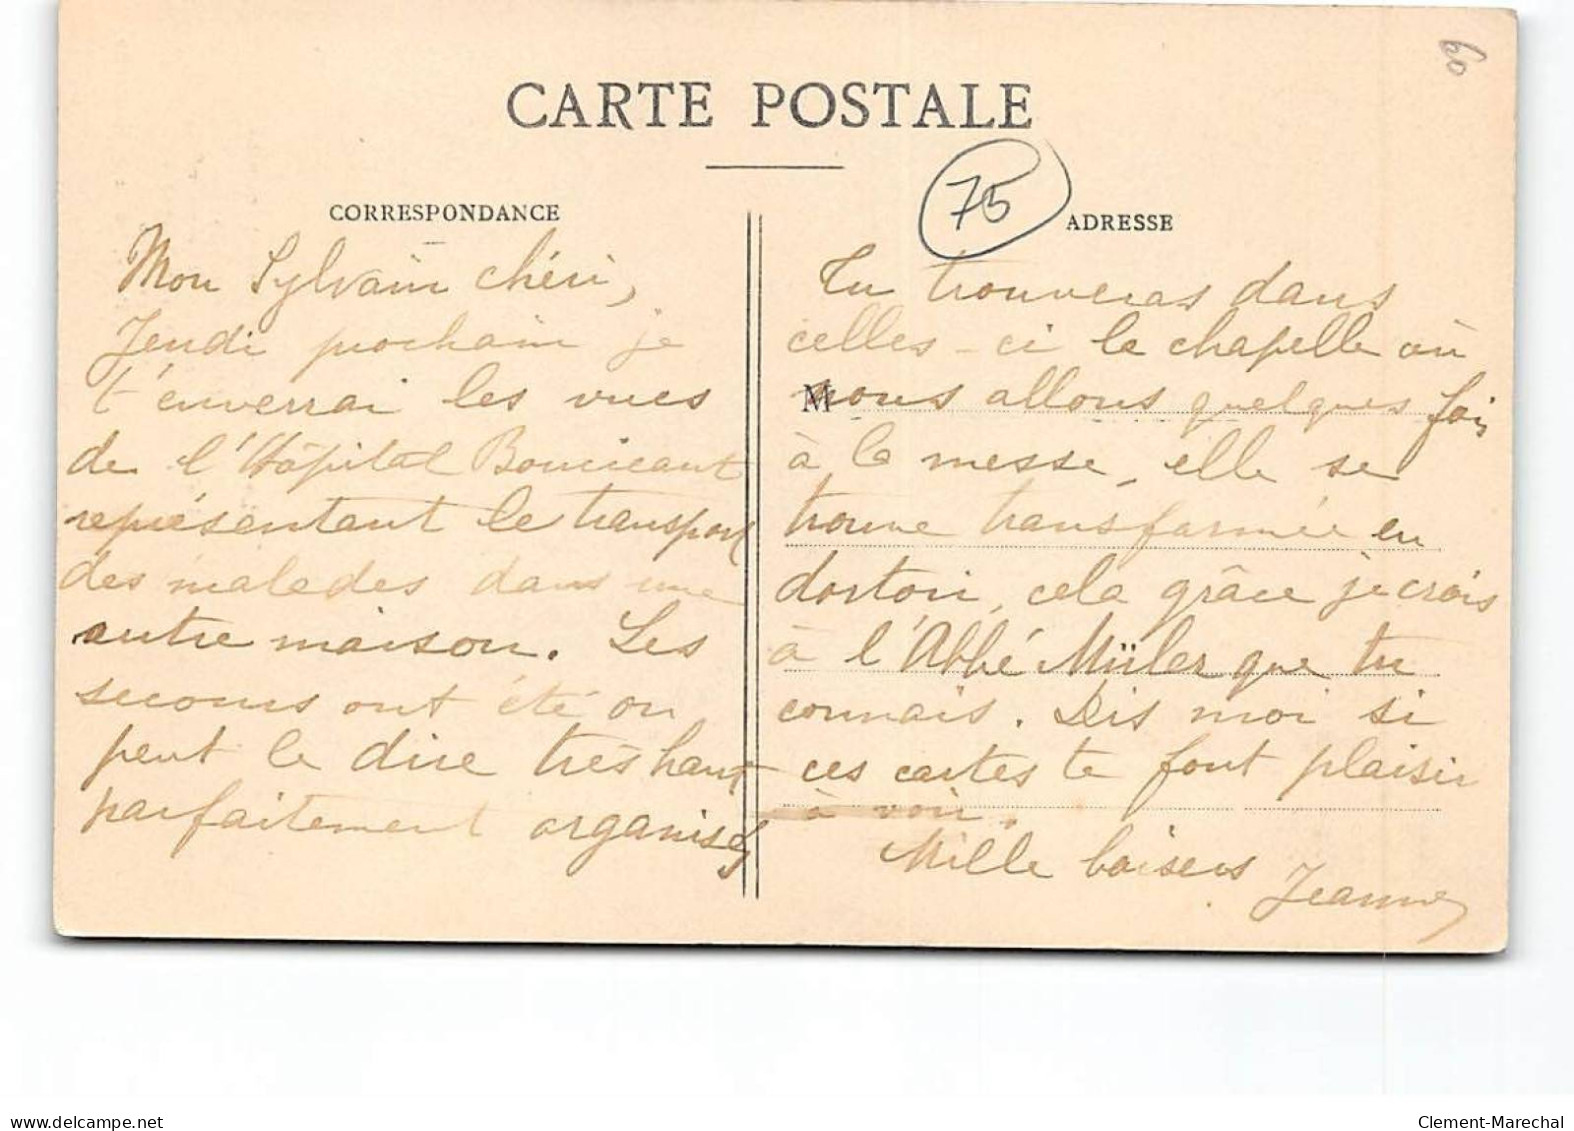 60
CARTE POSTALE
75
CORRESPONDANCE
Mon Sylvain chéri,
Jeudi prochain je
t'enverrai les vues
de l'Hôpital Boucicaut
représentant le transport
des malades dans une
autre maison. Les
secours ont été on
peut le dire très haut
parfaitement organisés
ADRESSE
Tu trouveras dans
celles-ci la chapelle où
M
nous allons quelques fois
à la messe, elle se
trouve transformée en
dortoir, cela grâce je crois
à l'Abbé Müler que tu
connais. Dis moi si
ces cartes te font plaisir
à voir.
Mille baisers
Jeanne
www.delcampe.net
Clement-Marechal